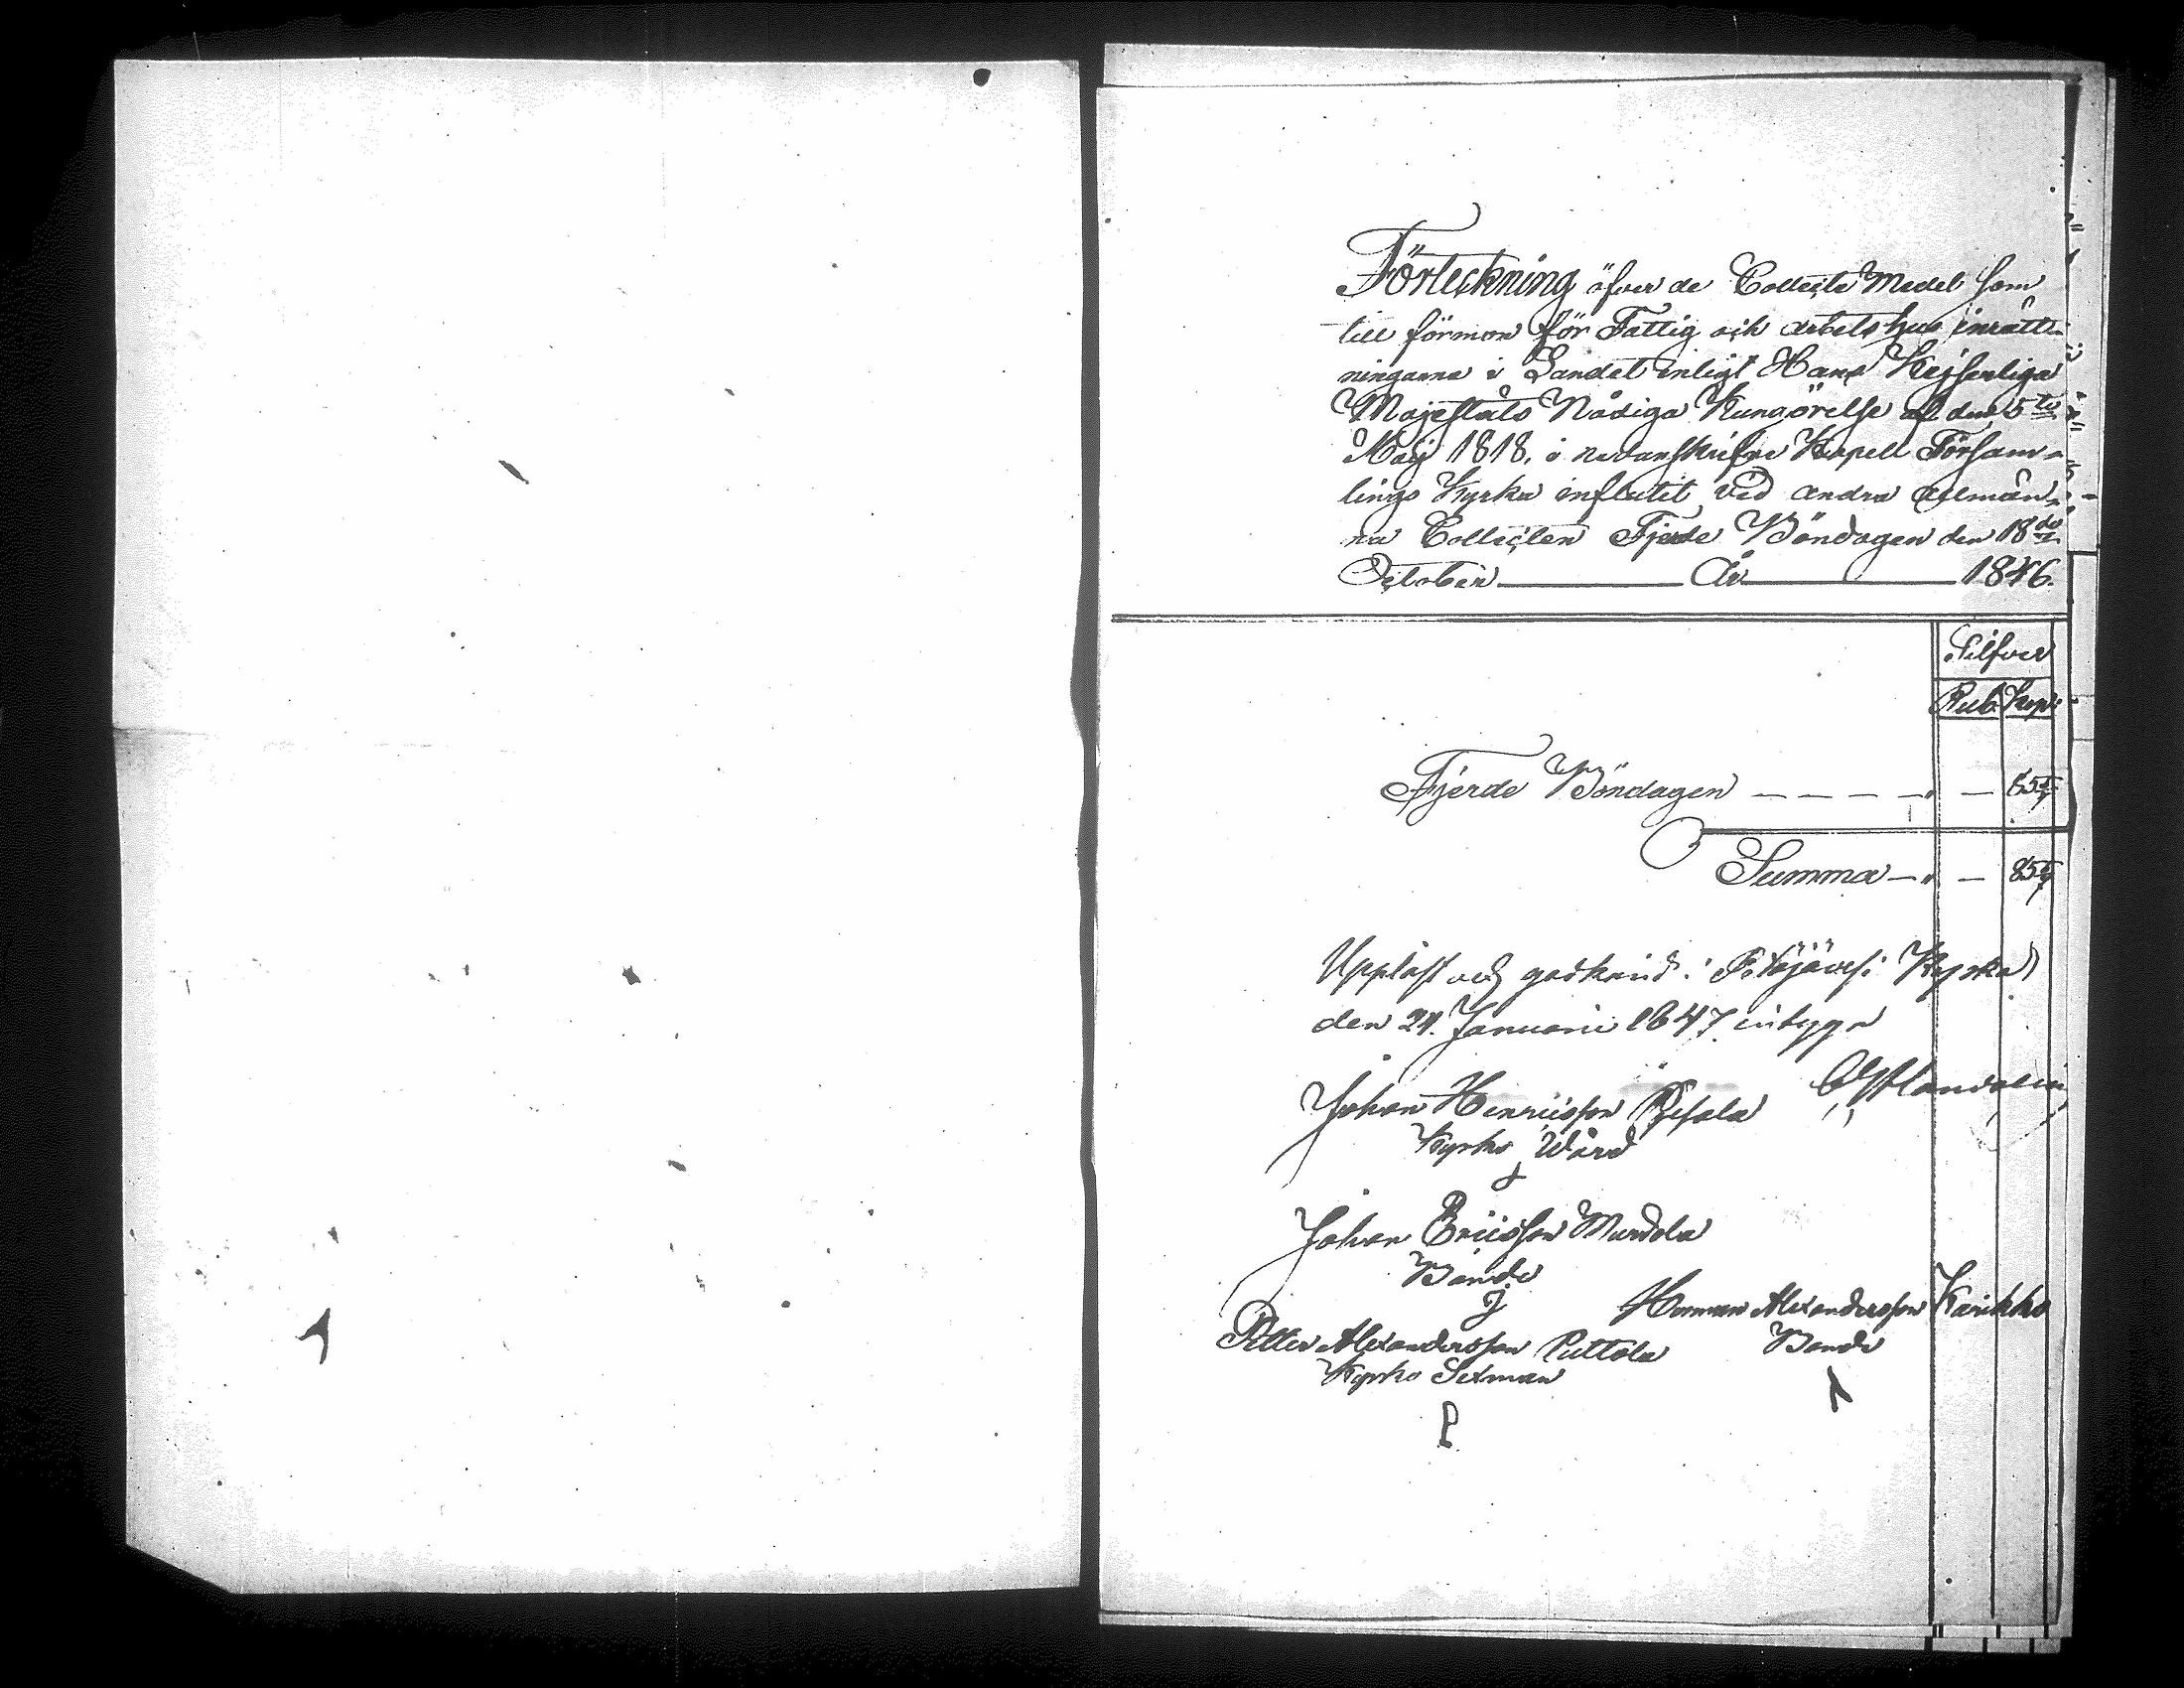 Förteckning öfver de Collecte Medel som
till förmon för Fattig och arbetshus inrätt-
ningarna i Landet enligt Hans Kejserliga
Majestäts Nådiga Kungörelse af den 5te
Maij 1818. i nedanskrifne Kapell Försam-
lings Kyrka influtit vid andra allmän-
na Collecten Fjerde Böndagen den 18de
October År 1846.
Silfver
Rub. Kop.
Fjerde Böndagen — — — — " — 85 5/7
Summa — " — 85 5/7
Uppläst och godkänd i Kyrka
den 24. Januarii 1847 intyga
Johan Henricsson
Kyrko Wärd
Johan Ericsson
Bonde
Herman Alexandersson Karikko
Petter Alexandersson Puttola Bonde
Kyrko Sexman
P